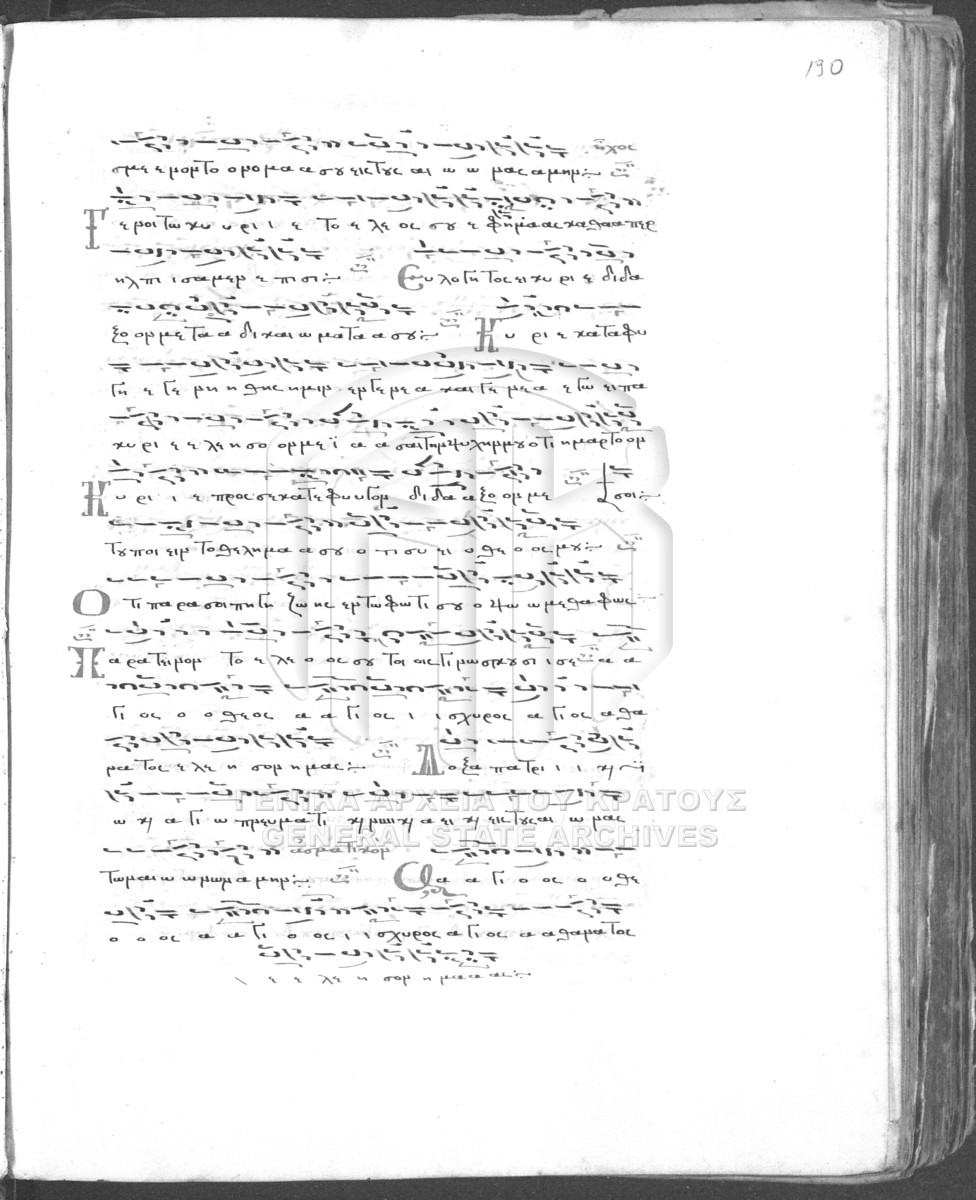 190
ἦχος
σμε ε μον το ο νο μα α σου εις τους αι ω ω νας α μην
Γ ε νοι το κυ υ ρι ι ε το ε λε ος σου ε φ ημα ας κα θα α περ
ηλ πι ι σα μεν ε πι σι Ευ λο γη τος ει κυ ρι ε δι δα
ξο ον με τα α δι και ω μα τα α σου Κ υ ρι ε κα τα φυ
γη ε γε νη η θης η μιν εν γε νε α και γε νε α ε γω ει πα
κυ ρι ε ε λε η σο ον με ϊ α α σαι την ψυ χην μου ο τι η μαρ το ον
Κ υ ρι ι ε προς σε κα τε φυ υ γον δι δα α ξο ον με σοι
του ποι ειν το θε λη μα α α σου ο τι συ ει ο θε ο ος μου
Ο τι πα ρα σοι πη γη ζω ης εν τω φω τι σου ο ψω ω με θα φως
Π α ρα τει νον το ε λε ο ος σου τοι οις γι νω σκου σι ι σε α α
γι ος ο ο θε ος α α γι ος ι ι σχυ ρος α γι ος α θα
να τος ε λε η σον η μας Δ ο ξα πα τρι ι ι κ υι
ω κ α γι ω πνευ μα τι κ νυν κ α ει κ εις τους αι ω νας
των αι ω ω νων α μην ἀσματικον Α α α γι ο ος ο ο θε
ο ο ος α α γι ο ος ι ι σχυ ρος α γι ος α α θα να τος
ε ε λε η σον η μα α ας
ΓΕΝΙΚΑ ΑΡΧΕΙΑ ΤΟΥ ΚΡΑΤΟΥΣ
GENERAL STATE ARCHIVES